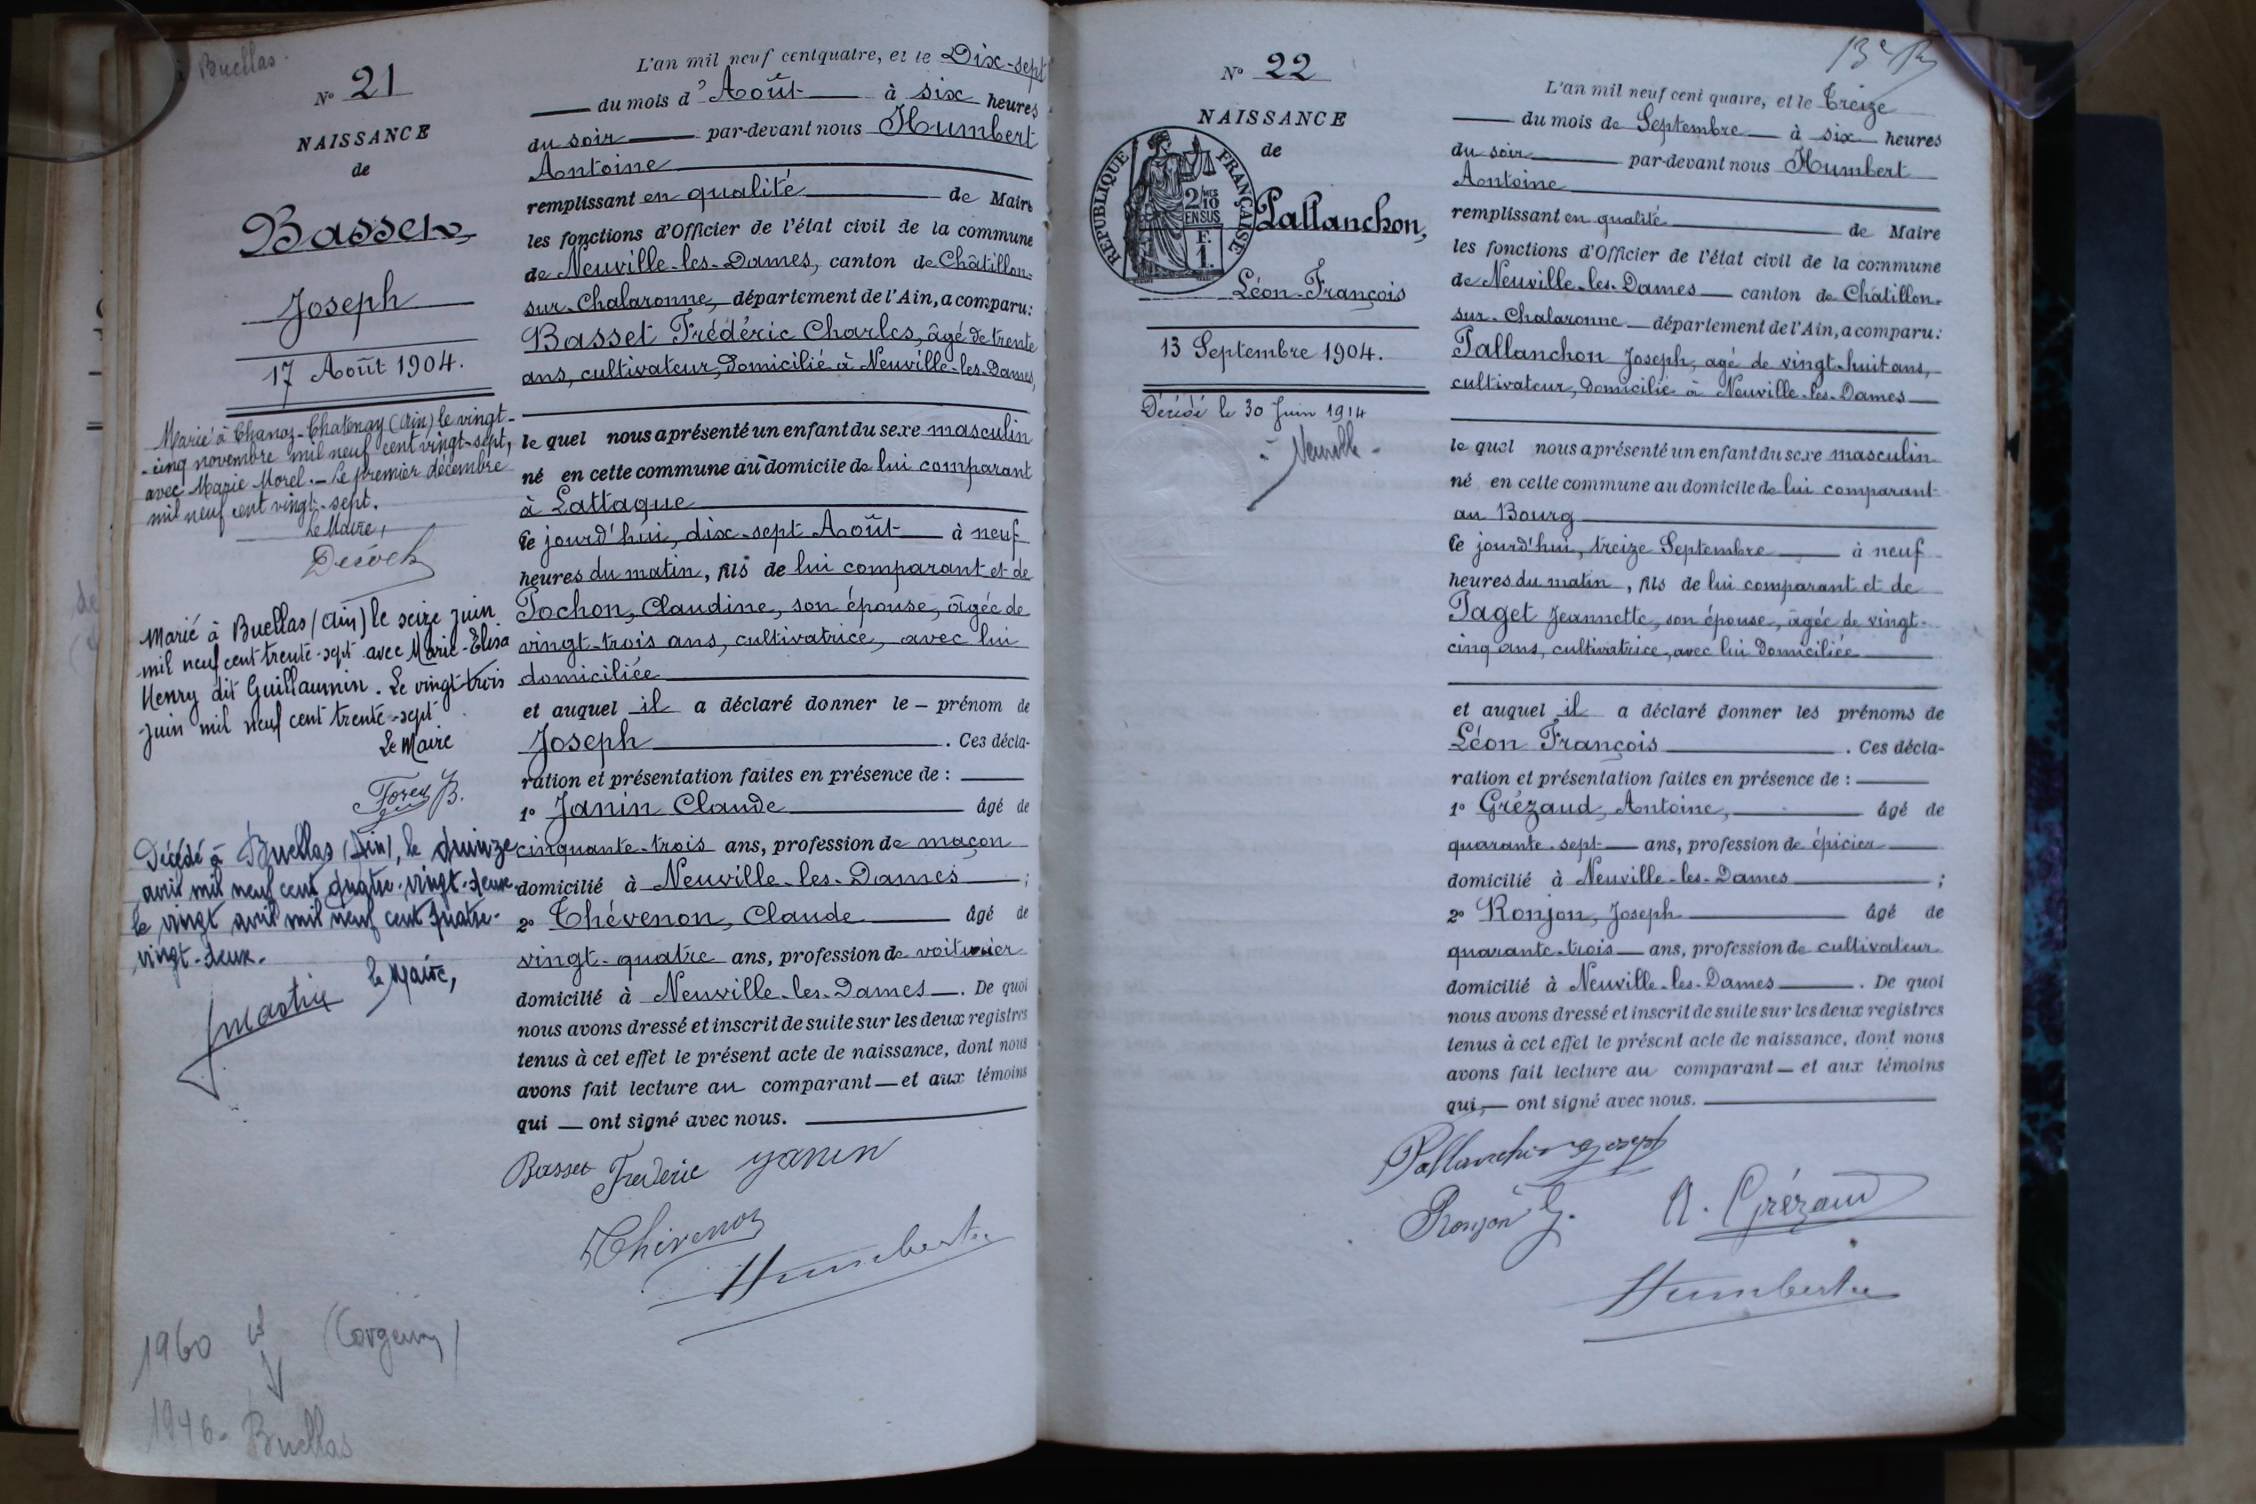 Buellas.
N° 21
NAISSANCE
de
Basset,
Joseph
17 Août 1904.
Marié à Chanoz-Chatenay (Ain) le vingt-
-cinq novembre mil neuf cent vingt-sept,
avec Marie Morel. _ Le premier décembre
mil neuf cent vingt-sept.
Le Maire,
Marié à Buellas (Ain) le seize juin
mil neuf cent trente-sept avec Marie-Elisa
Henry dit Guillaumin. Le vingt-trois
juin mil neuf cent trente-sept
Le Maire
Décédé à Buellas (Ain), le quinze
avril mil neuf cent quatre-vingt-deux
le vingt avril mil neuf cent quatre-
vingt-deux.
le Maire,
1960
1946 - Buellas
L'an mil neuf cent quatre, et le Dix-sept
du mois d'Août à six heures
du soir par-devant nous Humbert
Antoine
remplissant en qualité de Maire
les fonctions d'Officier de l'état civil de la commune
de Neuville-les-Dames, canton de Châtillon-
sur-Chalaronne, département de l'Ain, a comparu:
Basset Frédéric Charles, âgé de trente
ans, cultivateur, domicilié à Neuville-les-Dames,
le quel nous a présenté un enfant du sexe masculin
né en cette commune au domicile de lui comparant
à Lattaque
Ce jourd'hui, dix-sept Août à neuf
heures du matin, fils de lui comparant et de
Pochon, Claudine, son épouse, âgée de
vingt-trois ans, cultivatrice, avec lui
domiciliée
et auquel il a déclaré donner le prénom de
Joseph . Ces décla-
ration et présentation faites en présence de :
1° Janin Claude âgé de
cinquante-trois ans, profession de maçon
domicilié à Neuville-les-Dames ;
2° Thévenon, Claude âgé de
vingt-quatre ans, profession de voiturier
domicilié à Neuville-les-Dames . De quoi
nous avons dressé et inscrit de suite sur les deux registres
tenus à cet effet le présent acte de naissance, dont nous
avons fait lecture au comparant et aux témoins
qui ont signé avec nous.
Basset Frederic Janin
Thévenon
Humbert
N° 22
NAISSANCE
de
REPUBLIQUE FRANÇAISE
2/10 MES
EN SUS
F.
1.
Pallanchon,
Léon-François
13 Septembre 1904.
Décédé le 30 Juin 1914
à Neuville -
L'an mil neuf cent quatre, et le Treize
du mois de Septembre à six heures
du soir par-devant nous Humbert
Antoine
remplissant en qualité de Maire
les fonctions d'Officier de l'état civil de la commune
de Neuville-les-Dames canton de Châtillon-
sur-Chalaronne département de l'Ain, a comparu:
Pallanchon Joseph, agé de vingt-huit ans,
cultivateur, domicilié à Neuville-les-Dames
le quel nous a présenté un enfant du sexe masculin
né en cette commune au domicile de lui comparant
au Bourg
Ce jourd'hui, treize Septembre à neuf
heures du matin, fils de lui comparant et de
Paget Jeannette, son épouse, âgée de vingt-
cinq ans, cultivatrice, avec lui domiciliée
et auquel il a déclaré donner les prénoms de
Léon François . Ces décla-
ration et présentation faites en présence de :
1° Grézaud, Antoine, âgé de
quarante-sept ans, profession de épicier
domicilié à Neuville-les-Dames ;
2° Ronjon, Joseph âgé de
quarante-trois ans, profession de cultivateur
domicilié à Neuville-les-Dames . De quoi
nous avons dressé et inscrit de suite sur les deux registres
tenus à cet effet le présent acte de naissance, dont nous
avons fait lecture au comparant et aux témoins
qui, ont signé avec nous.
Pallanchon Joseph
Ronjon J. A. Grézaud
Humbert